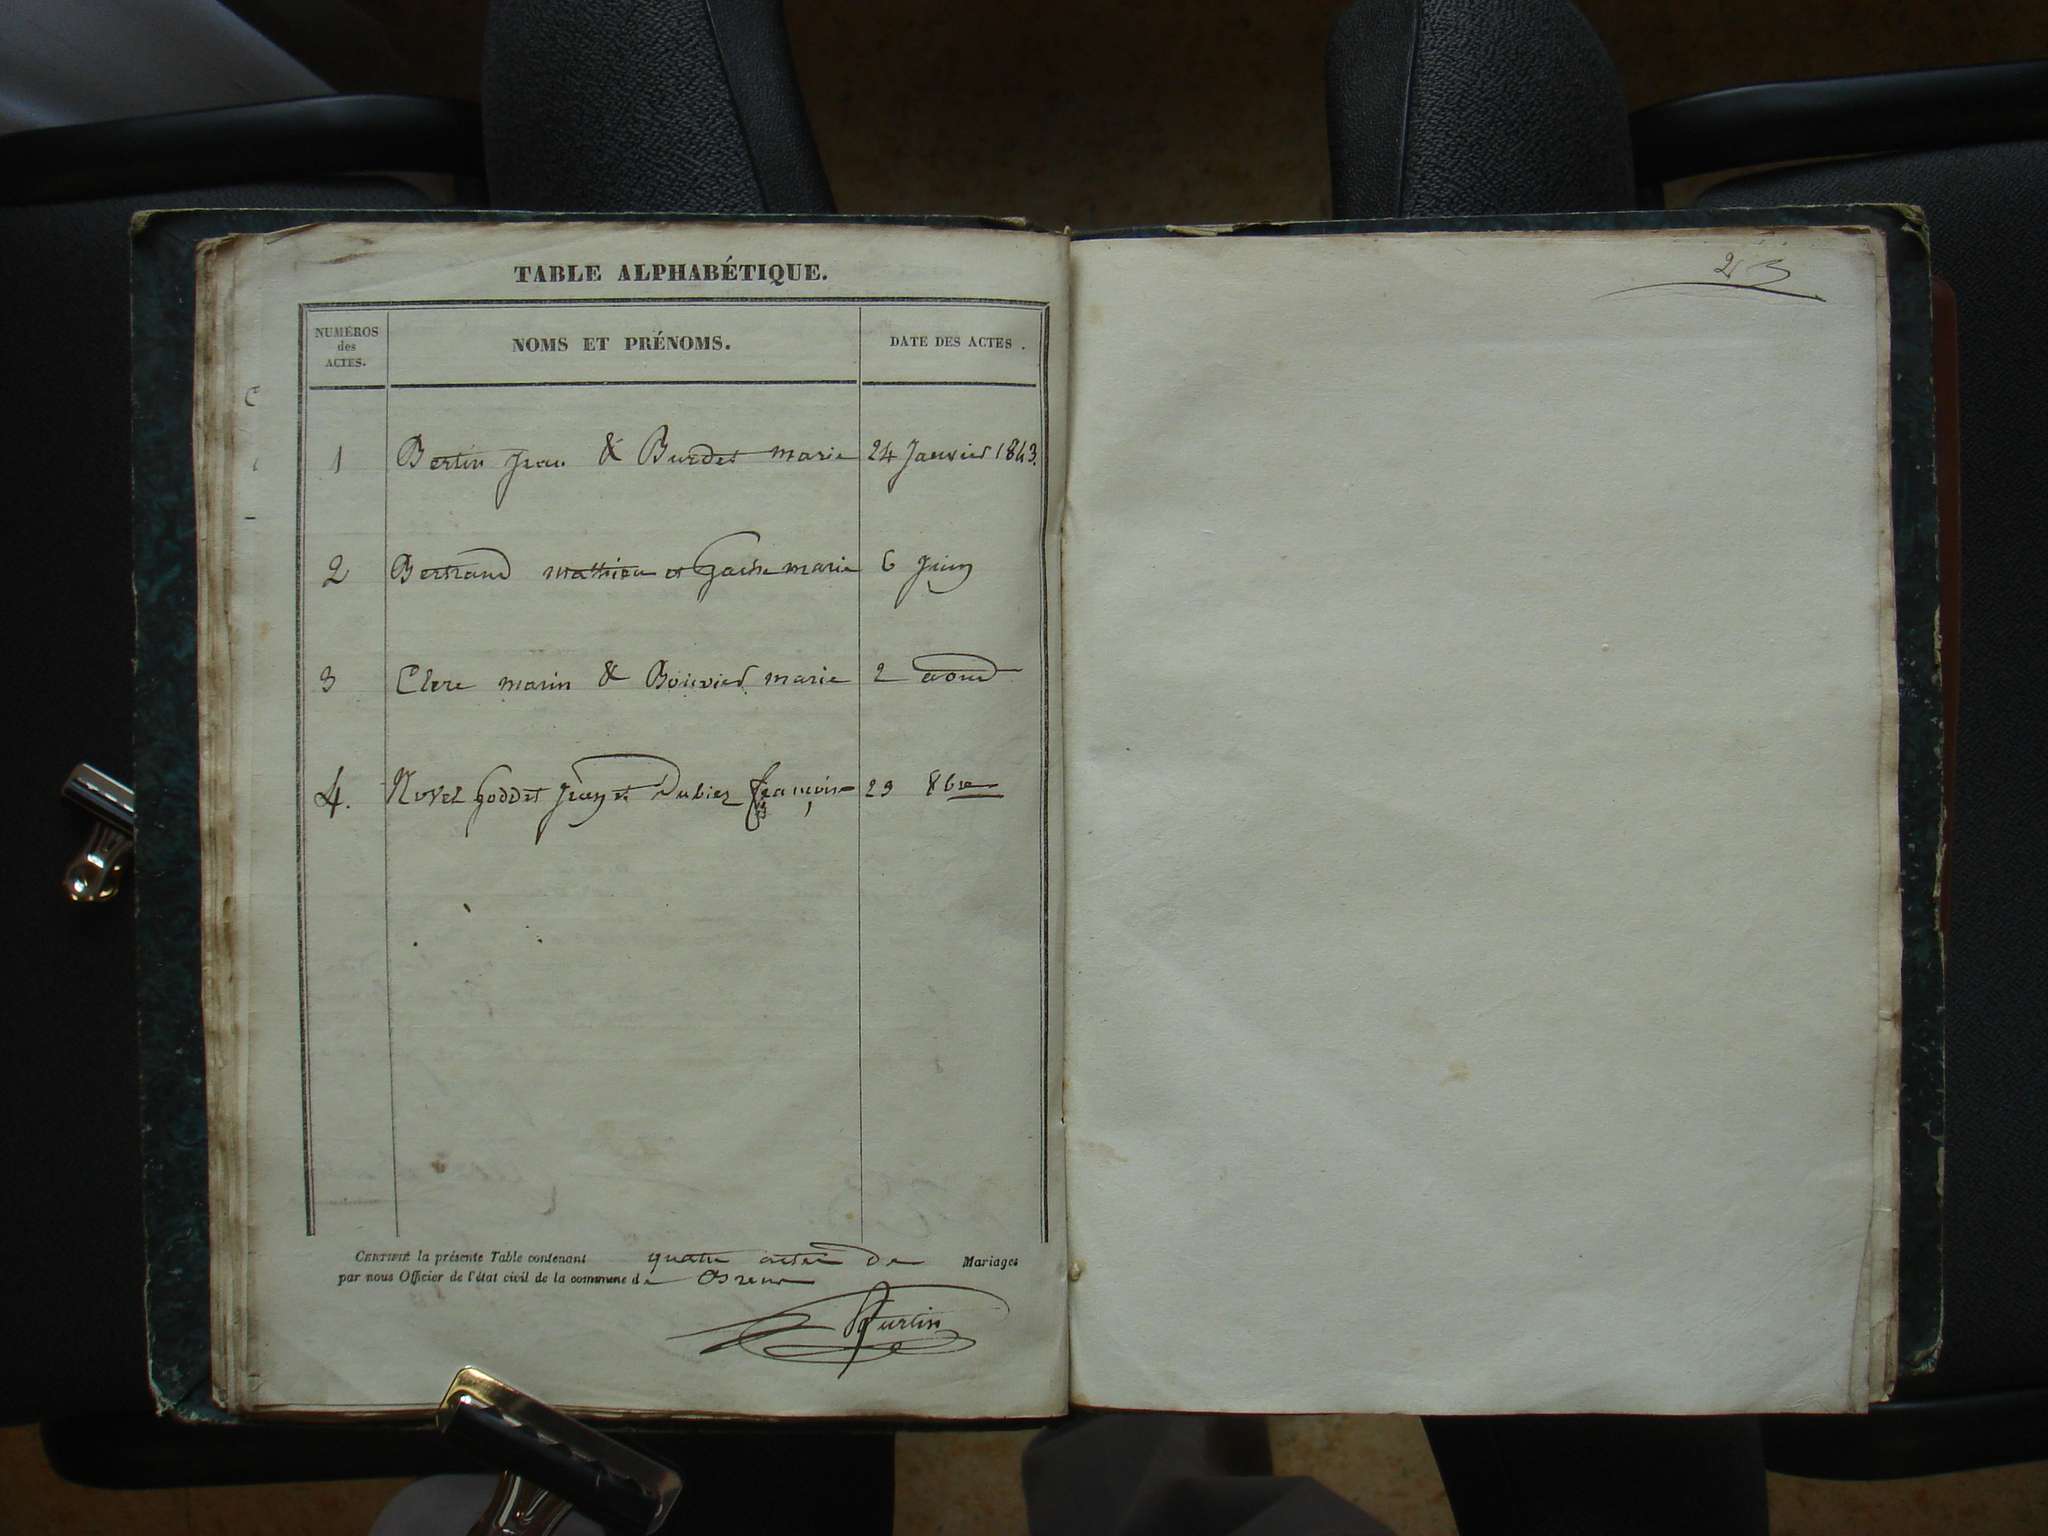 TABLE ALPHABÉTIQUE.
NUMÉROS des ACTES.
NOMS ET PRÉNOMS.
DATE DES ACTES.
1 Bertin Jean & Burdet marie 24 Janvier 1843.
2 Bertrand mathieu et Gache marie 6 Juin
3 Clere marin & Bouvier marie 2 aout
4. Novel Goddet Jean et Dubiez françoise 29 8bre
CERTIFIÉ la présente Table contenant quatre actes de Mariages
par nous Officier de l'état civil de la commune de
Hurtin